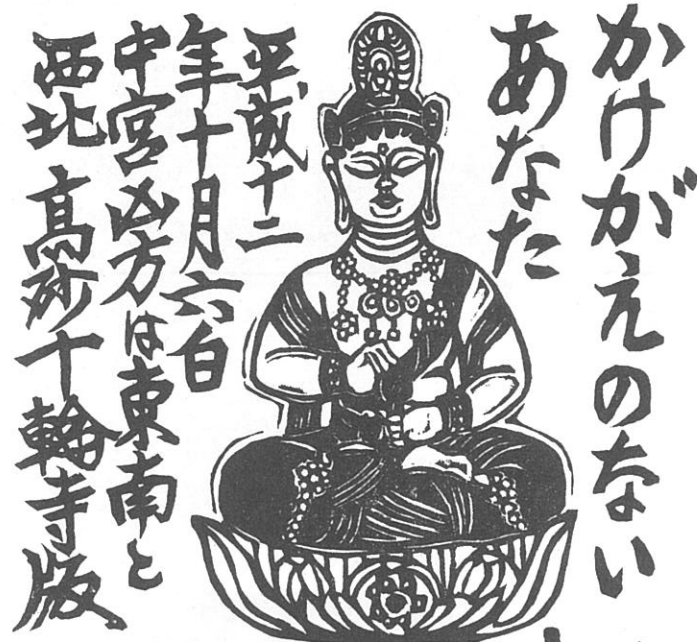 かけがえのない
あなた
平成十二
年十月六白
中宮凶方は東南と
西北 高砂十輪寺版